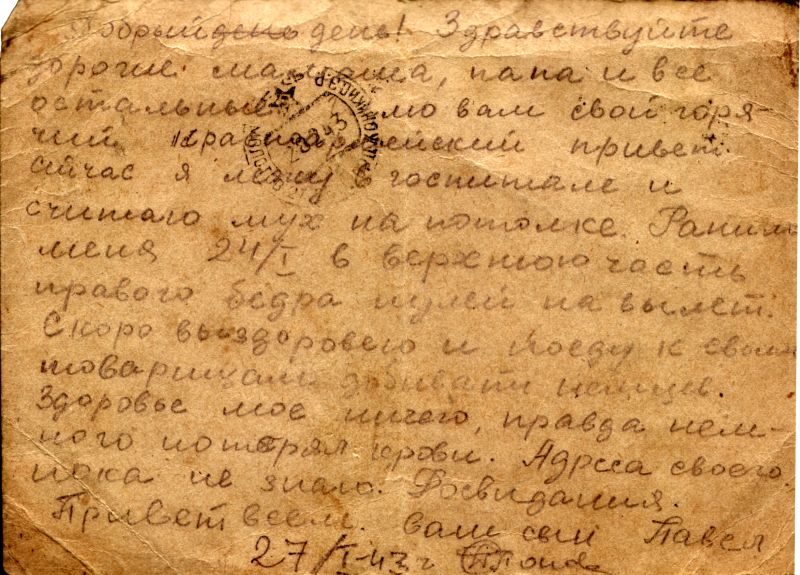 Добрый день день! Здравствуйте
дорогие мамаша, папа и все
остальные мю вам свой горя-
чий красноармейский привет.
сейчас я лежу в госпитале и
считаю мух на потолке. Ранили
меня 24/I в верхнюю часть
правого бедра пулей на вылет.
Скоро выздоровею и поеду к своим
товарищам добивати немцев.
Здоровье мое ничего, правда нем-
ного потерял крови. Адреса своего
пока не знаю. Досвидания.
Привет всем. ваш сын Павел
27/I-43 г